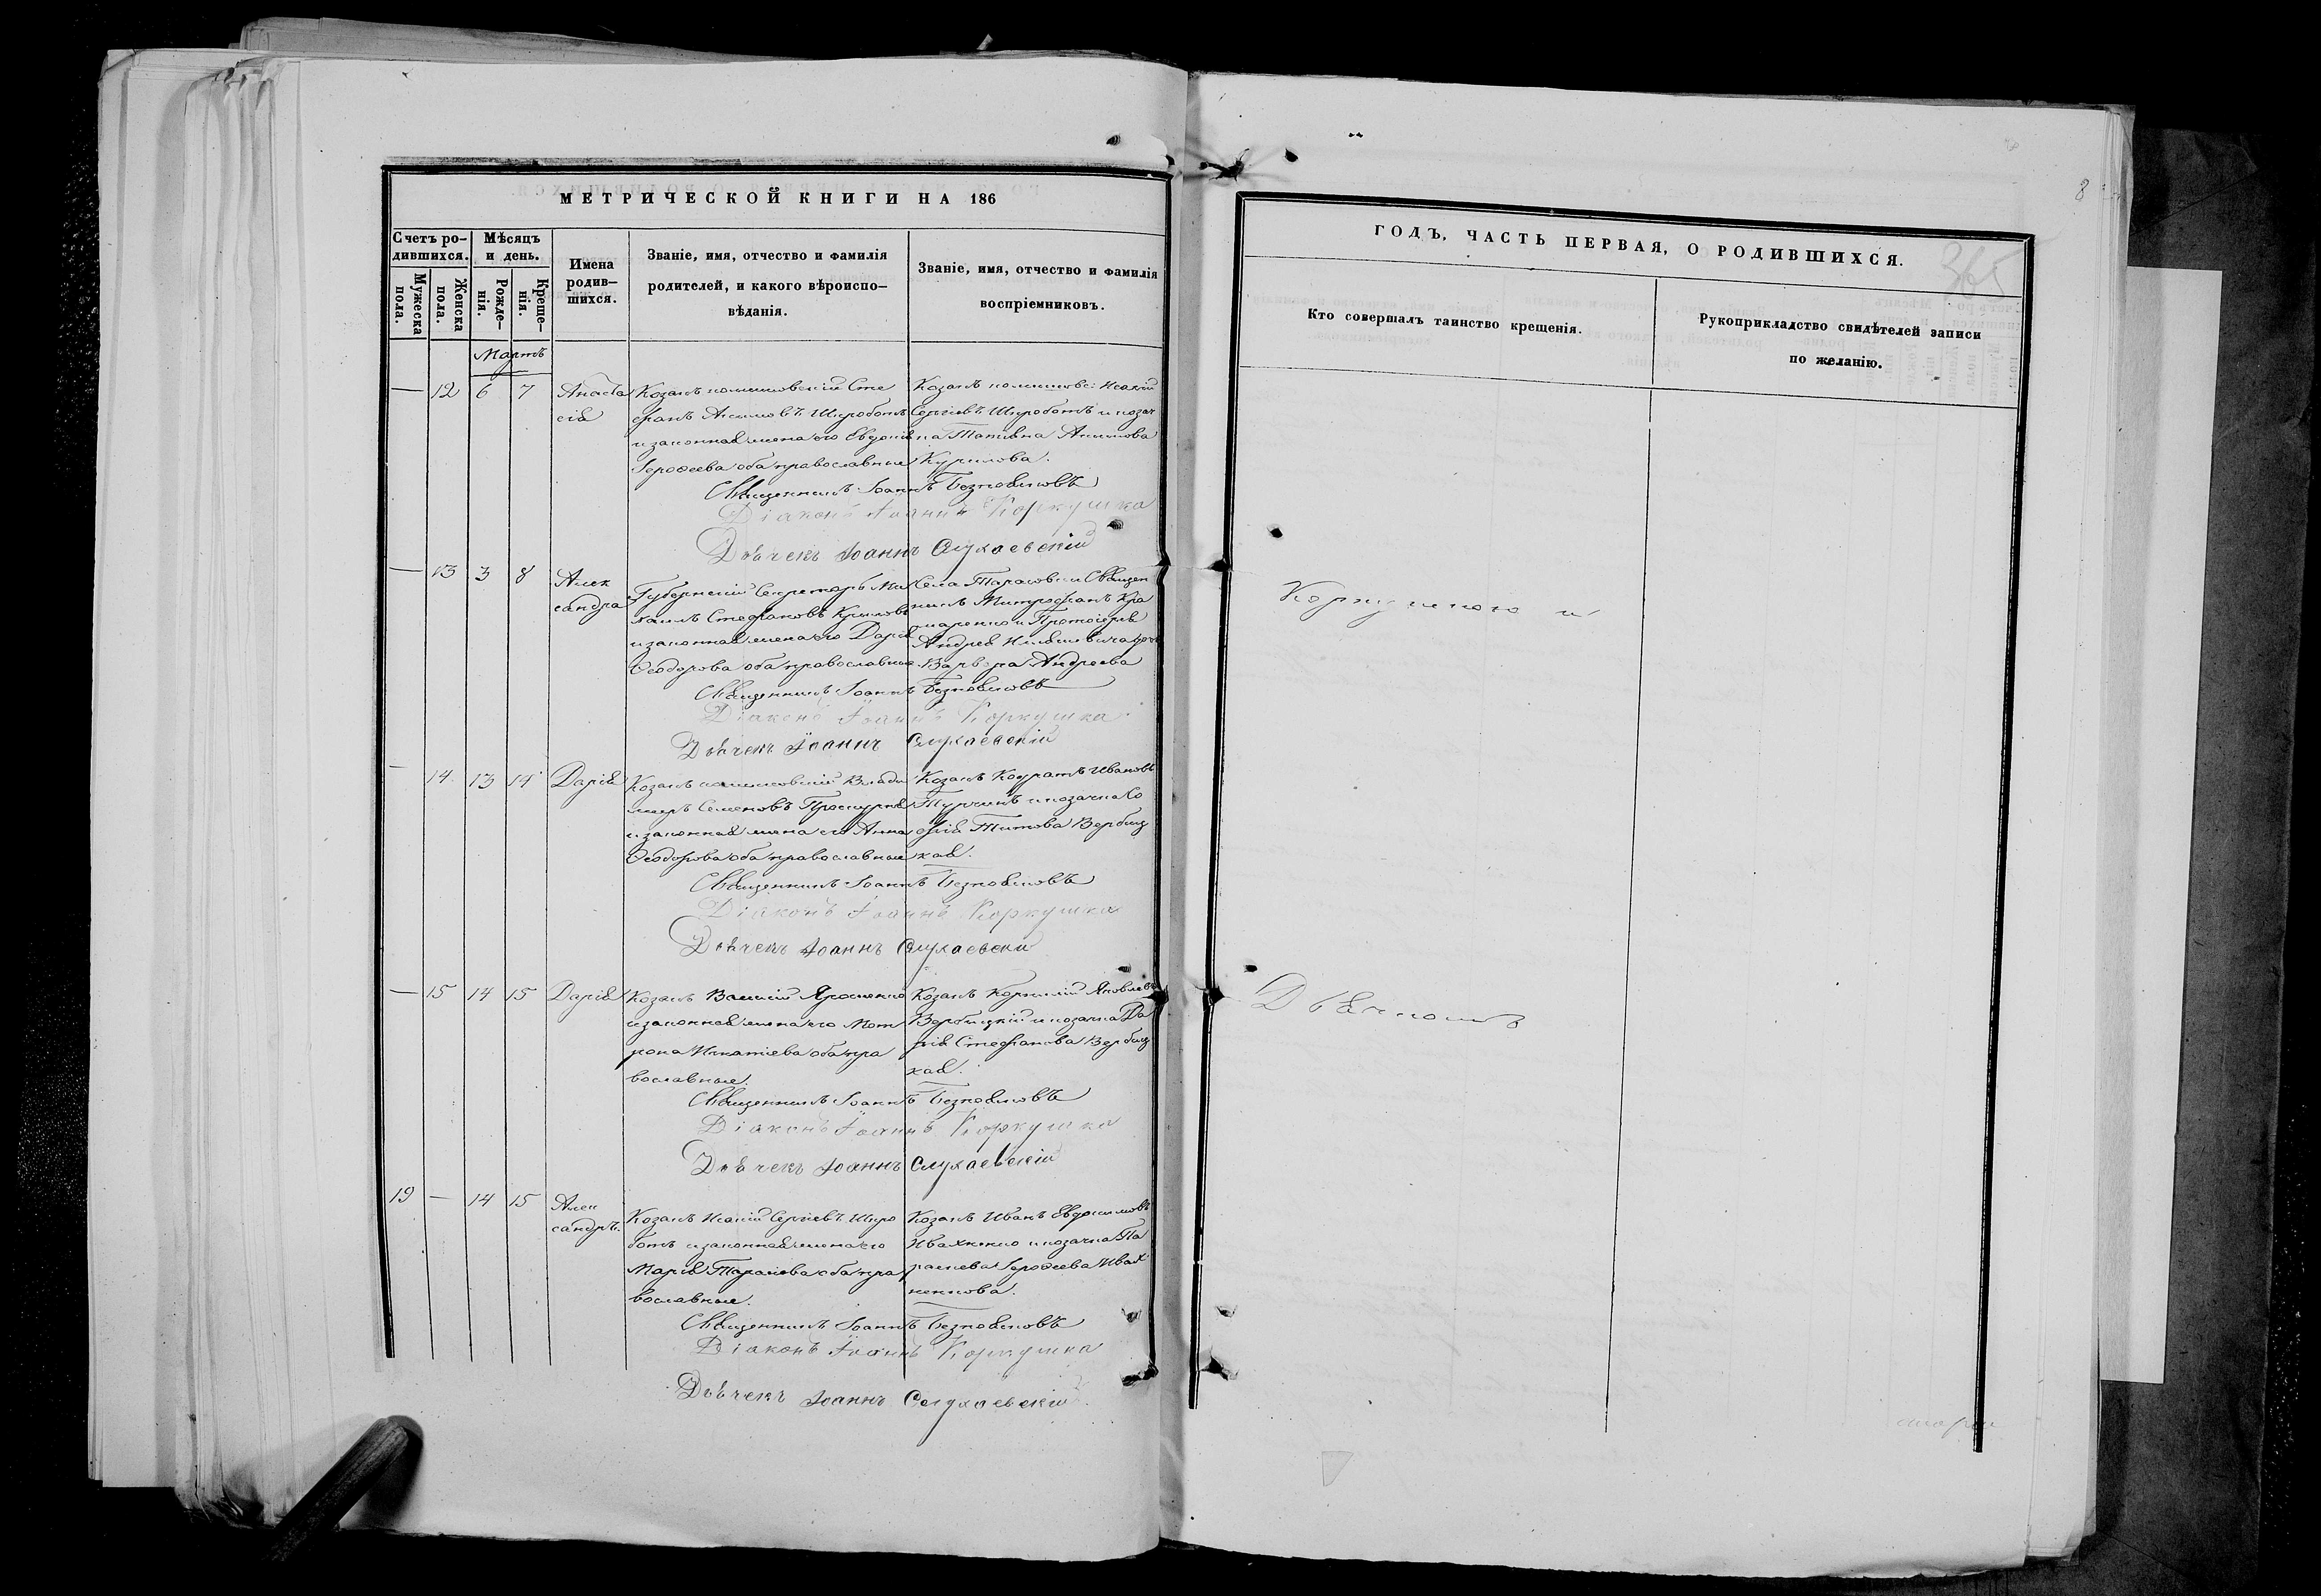 МЕТРИЧЕСКОЙ КНИГИ НА 186
Счетъ ро-
дившихся.
Мѣсяцъ
и день.
Мужеска
пола.
Женска
пола.
Рожде-
нія.
Креще-
нія.
Имена
родив-
шихся.
Званіе, имя, отчество и фамилія
родителей, и какого вѣроиспо-
вѣданія.
Званіе, имя, отчество и фамилія
воспріемниковъ.
Мартъ
— 12 6 7
Анаста
сія
Козакъ Сте
фанъ Акимовъ Шкроботъ
и законная жена его Евдокія
Іероѳеева оба православные
Козакъ Исакій
Сергіевъ Шкроботъ и козач
ка Татіана Акимова
Курилова.
Священникъ Іоаннъ Безпояsковъ
Діаконъ Іоаннъ Коркушка
Дьячекъ Іоаннъ Слухаевскій
— 13 3 8
Алек
сандра
Губернскій Секретарь Ми
хаилъ Стефановъ
и законная жена его Дарія
Ѳеодорова оба православные
Села Тарасовки Священ
никъ Митрофанъ Кра
маренко и Протоіерея
Андрея
Варвара Андреева
Священникъ Іоаннъ
Діаконъ Іоаннъ Коркушка
Дьячекъ Іоаннъ Слухаевскій
— 14 13 14
Дарія
Козакъ Влади
миръ Семеновъ
и законная жена его Анна
Ѳеодорова оба православные
Козакъ Кодратъ Ивановъ
Турчинъ и козачка Со
фія Титова Вербиц
кая.
Священникъ Іоаннъ
Діаконъ Іоаннъ Коркушка
Дьячекъ Іоаннъ Слухаевскій
— 15 14 15
Дарія
Козакъ
и законная жена его Мот
рона Игнатіева оба пра
вославные.
Козакъ Корнилій Яковлевъ
Вербицкій и козачка Да
рія Стефанова Вербиц
кая.
Священникъ Іоаннъ
Діаконъ Іоаннъ Коркушка
Дьячекъ Іоаннъ Слухаевскій
19 — 14 15
Алек
сандръ.
Козакъ Исакій Сергіевъ Шкро
ботъ и законная жена его
Марія Тарасова оба пра
вославные.
Козакъ Иванъ Евдокимовъ
Ивахненко и козачка Па
раскева Іероѳеева Ивах
ненкова.
Священникъ Іоаннъ
Діаконъ Іоаннъ Коркушка
Дьячекъ Іоаннъ Слухаевскій
8
365
ГОДЪ, ЧАСТЬ ПЕРВАЯ, О РОДИВШИХСЯ.
Кто совершалъ таинство крещенія.
Рукоприкладство свидѣтелей записи
по желанію.
Коркушкою и
Дьячкомъ